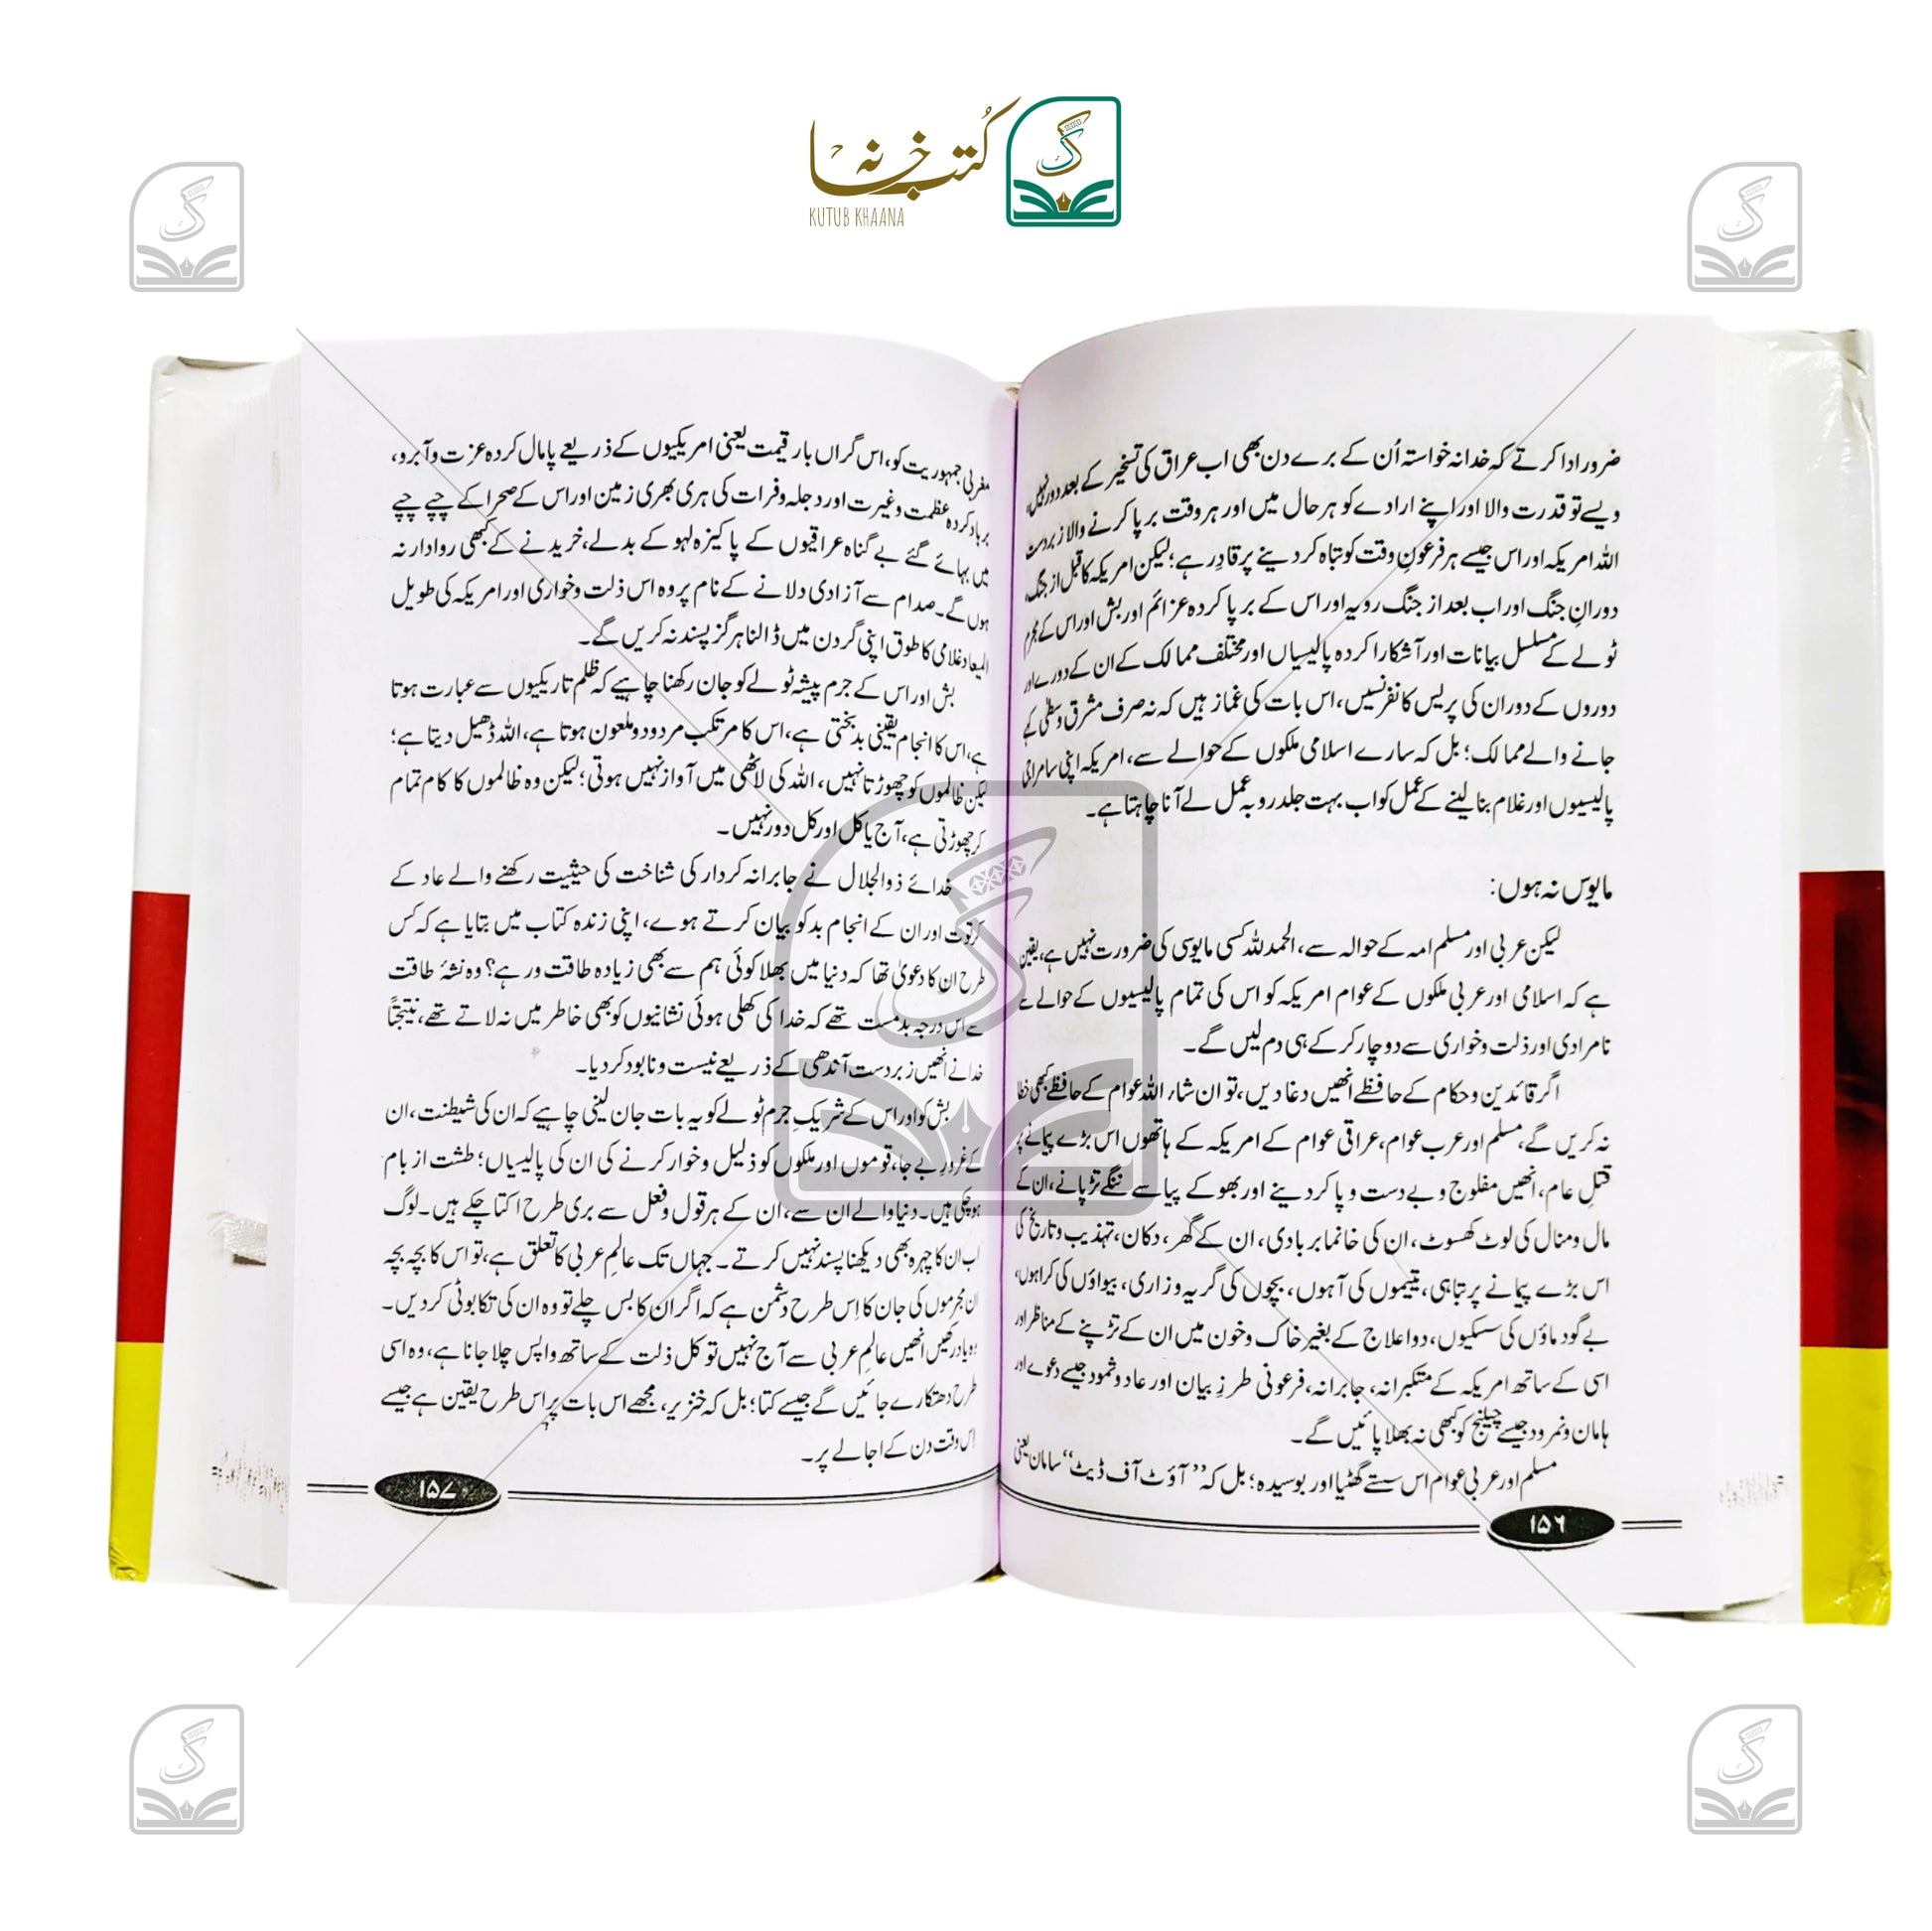 کُتب خانہ
KUTUB KHAANA
ضرور ادا کرتے کہ خدانہ خواستہ اُن کے برے دن بھی اب عراق کی تسخیر کے بعد دور نہیں،
ویسے تو قدرت والا اور اپنے ارادے کو ہر حال میں اور ہر وقت برپا کرنے والا زبردست
اللہ امریکہ اور اس جیسے ہر فرعونِ وقت کو تباہ کر دینے پر قادِر ہے؛ لیکن امریکہ کا قبل از جنگ،
دورانِ جنگ اور اب بعد از جنگ رویہ اور اس کے برپا کردہ عزائم اور بش اور اس کے مجرم
ٹولے کے مسلسل بیانات اور آشکارا کردہ پالیسیاں اور مختلف ممالک کے ان کے دورے اور
دوروں کے دوران کی پریس کانفرنسیں، اس بات کی غماز ہیں کہ نہ صرف مشرق وسطٰی کے
جانے والے ممالک؛ بل کہ سارے اسلامی ملکوں کے حوالے سے، امریکہ اپنی سامراجی
پالیسیوں اور غلام بنا لینے کے عمل کو اب بہت جلد روبہ عمل لے آنا چاہتا ہے۔
مایوس نہ ہوں:
لیکن عربی اور مسلم امہ کے حوالہ سے، الحمدللہ کسی مایوسی کی ضرورت نہیں ہے، یقین
ہے کہ اسلامی اور عربی ملکوں کے عوام امریکہ کو اس کی تمام پالیسیوں کے حوالے سے
نامرادی اور ذلت وخواری سے دوچار کر کے ہی دم لیں گے۔
اگر قائدین وحکام کے حافظے انھیں دغا دیں، تو ان شاء اللہ عوام کے حافظے کبھی خطا
نہ کریں گے، مسلم اور عرب عوام، عراقی عوام کے امریکہ کے ہاتھوں اس بڑے پیمانے پر
قتلِ عام، انھیں مفلوج و بے دست و پا کر دینے اور بھوکے پیاسے ننگے تڑپانے، ان کے
مال ومنال کی لوٹ کھسوٹ، ان کی خانما بربادی، ان کے گھر، دکان، تہذیب و تاریخ کی
اس بڑے پیمانے پر تباہی، یتیموں کی آہوں، بچوں کی گریہ و زاری، بیواؤں کی کراہوں،
بے گود ماؤں کی سسکیوں، دوا علاج کے بغیر خاک وخون میں ان کے تڑپنے کے مناظر اور
اسی کے ساتھ امریکہ کے متکبرانہ، جابرانہ، فرعونی طرزِ بیان اور عاد وثمود جیسے دعوے اور
ہامان و نمرود جیسے چیلنج کو کبھی نہ بھلا پائیں گے۔
مسلم اور عربی عوام اس سستے گھٹیا اور بوسیدہ؛ بل کہ ’’آؤٹ آف ڈیٹ‘‘ سامان یعنی
۱۵۶
مغربی جمہوریت کو، اس گراں بار قیمت یعنی امریکیوں کے ذریعے پامال کردہ عزت و آبرو،
برباد کردہ عظمت وغیرت اور دجلہ و فرات کی ہری بھری زمین اور اس کے صحرا کے چپے چپے
میں بہائے گئے بے گناہ عراقیوں کے پاکیزہ لہو کے بدلے، خریدنے کے کبھی روادار نہ
ہوں گے۔ صدام سے آزادی دلانے کے نام پر وہ اس ذلت وخواری اور امریکہ کی طویل
المیعاد غلامی کا طوق اپنی گردن میں ڈالنا ہرگز پسند نہ کریں گے۔
بش اور اس کے جرم پیشہ ٹولے کو جان رکھنا چاہیے کہ ظلم تاریکیوں سے عبارت ہوتا
ہے، اس کا انجام یقینی بدبختی ہے، اس کا مرتکب مردود و ملعون ہوتا ہے، اللہ ڈھیل دیتا ہے؛
لیکن ظالموں کو چھوڑتا نہیں، اللہ کی لاٹھی میں آواز نہیں ہوتی؛ لیکن وہ ظالموں کا کام تمام
کر چھوڑتی ہے، آج یا کل اور کل دور نہیں۔
خدائے ذوالجلال نے جابرانہ کردار کی شناخت کی حیثیت رکھنے والے عاد کے
کرتوت اور ان کے انجام بد کو بیان کرتے ہوے، اپنی زندہ کتاب میں بتایا ہے کہ کس
طرح ان کا دعویٰ تھا کہ دنیا میں بھلا کوئی ہم سے بھی زیادہ طاقت ور ہے؟ وہ نشۂ طاقت
سے اس درجہ بدمست تھے کہ خدا کی کھلی ہوئی نشانیوں کو بھی خاطر میں نہ لاتے تھے، نتیجتاً
خدا نے انھیں زبردست آندھی کے ذریعے نیست و نابود کر دیا۔
بش کو اور اس کے شریکِ جرم ٹولے کو یہ بات جان لینی چاہیے کہ ان کی شیطنت، ان
کے غرورِ بے جا، قوموں اور ملکوں کو ذلیل وخوار کرنے کی ان کی پالیسیاں؛ طشت از بام
ہو چکی ہیں۔ دنیا والے ان سے، ان کے ہر قول و فعل سے بری طرح اکتا چکے ہیں۔ لوگ
اب ان کا چہرہ بھی دیکھنا پسند نہیں کرتے۔ جہاں تک عالمِ عربی کا تعلق ہے، تو اس کا بچہ بچہ
ان مجرموں کی جان کا اِس طرح دشمن ہے کہ اگر ان کا بس چلے تو وہ ان کی تکا بوٹی کر دیں۔
وہ یاد رکھیں انھیں عالمِ عربی سے آج نہیں تو کل ذلت کے ساتھ واپس چلا جانا ہے، وہ اسی
طرح دھتکارے جائیں گے جیسے کتا؛ بل کہ خنزیر، مجھے اس بات پر اس طرح یقین ہے جیسے
اِس وقت دن کے اجالے پر۔
۱۵۷